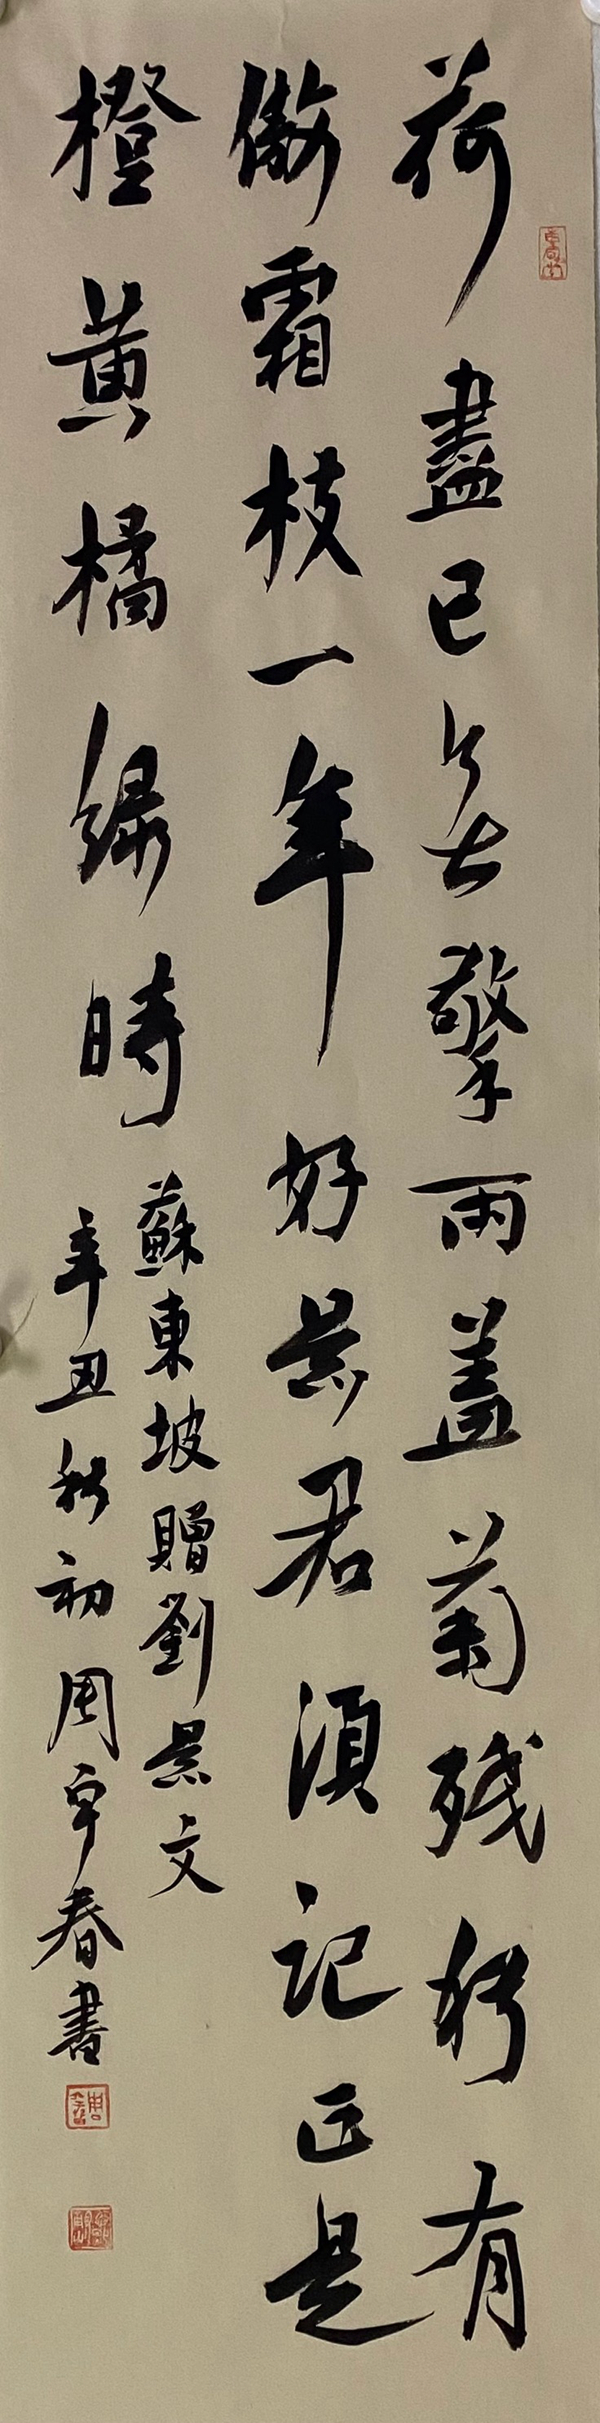 荷盡已無擎雨盖菊残猶有
傲霜枝一年好景君須記正是
橙黄橘緑時
蘇東坡贈劉景文
辛丑秋初周宇春書